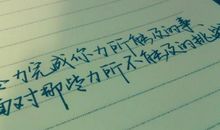 全力完成你力所能及的事
面对那些力所不能及的挑